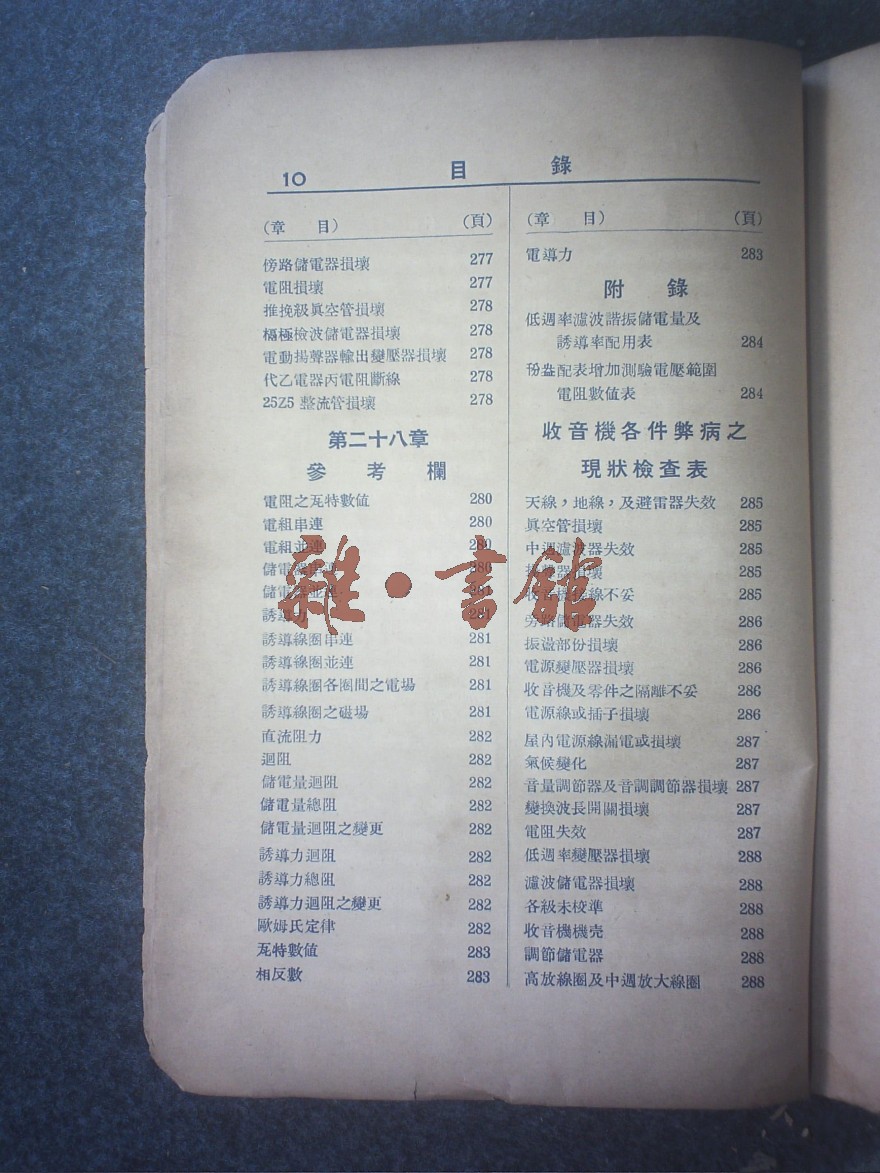 10 目 錄
(章 目) (頁)
傍路儲電器損壞 277
電阻損壞 277
推挽級眞空管損壞 278
柵極檢波儲電器損壞 278
電動揚聲器輸出變壓器損壞 278
代乙電器丙電阻斷線 278
25Z5 整流管損壞 278
第二十八章
參考欄
電阻之瓦特數値 280
電組串連 280
電組並連 280
儲電器串連 280
儲電器並連 281
誘導力 281
誘導線圈串連 281
誘導線圈並連 281
誘導線圈各圈間之電場 281
誘導線圈之磁場 281
直流阻力 282
迴阻 282
儲電量迴阻 282
儲電量總阻 282
儲電量迴阻之變更 282
誘導力迴阻 282
誘導力總阻 282
誘導力迴阻之變更 282
歐姆氏定律 282
瓦特數値 283
相反數 283
(章 目) (頁)
電導力 283
附 錄
低週率濾波諧振儲電量及
誘導率配用表 284
配表增加測驗電壓範圍
電阻數値表 284
收音機各件弊病之
現狀檢查表
天線，地線，及避雷器失效 285
眞空管損壞 285
中週濾波器失效 285
器損壞 285
收音機接線不妥 285
旁路儲電器失效 286
振盪部份損壞 286
電源變壓器損壞 286
收音機及零件之隔離不妥 286
電源線或插子損壞 286
屋內電源線漏電或損壞 287
氣候變化 287
音量調節器及音調調節器損壞 287
變換波長開關損壞 287
電阻失效 287
低週率變壓器損壞 288
濾波儲電器損壞 288
各級未校準 288
收音機機壳 288
調節儲電器 288
高放線圈及中週放大線圈 288
雜·書舘